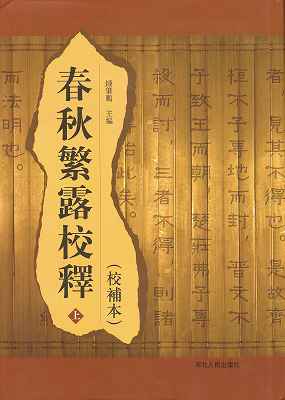 春秋繁露校釋
上
（校補本）
鍾肇鵬 主編
者見其不得也。是故齊
桓不予專地而封 晉文不
予致王而朝 楚莊弗予專
殺而討 三者不得 則諸
殆此矣。
而法明也。
河北人民出版社